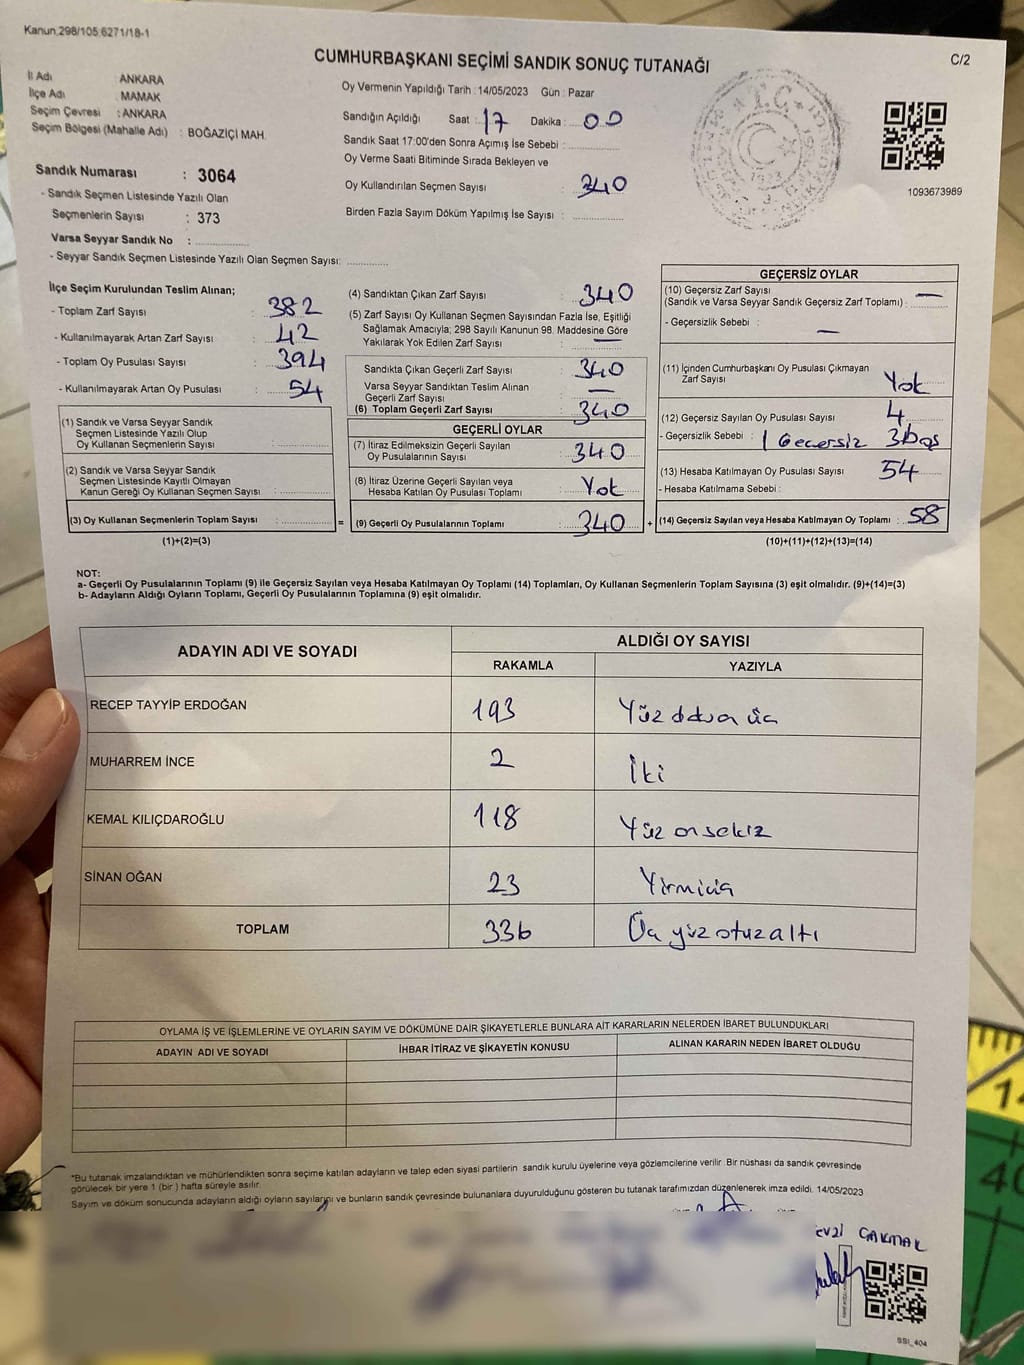 Kanun.298/105.6271/18-1
CUMHURBAŞKANI SEÇİMİ SANDIK SONUÇ TUTANAĞI
C/2
İl Adı : ANKARA
İlçe Adı : MAMAK
Seçim Çevresi : ANKARA
Seçim Bölgesi (Mahalle Adı) : BOĞAZİÇİ MAH.
Sandık Numarası : 3064
- Sandık Seçmen Listesinde Yazılı Olan
Seçmenlerin Sayısı : 373
Varsa Seyyar Sandık No : ..............
- Seyyar Sandık Seçmen Listesinde Yazılı Olan Seçmen Sayısı: ............
Oy Vermenin Yapıldığı Tarih : 14/05/2023 Gün : Pazar
Sandığın Açıldığı Saat : 17 Dakika : 00
Sandık Saat 17:00'den Sonra Açımış İse Sebebi : ..............
Oy Verme Saati Bitiminde Sırada Bekleyen ve
Oy Kullandırılan Seçmen Sayısı : 340
Birden Fazla Sayım Döküm Yapılmış İse Sayısı : ..............
T.C.
1923
1093673989
İlçe Seçim Kurulundan Teslim Alınan;
- Toplam Zarf Sayısı : 382
- Kullanılmayarak Artan Zarf Sayısı : 42
- Toplam Oy Pusulası Sayısı : 394
- Kullanılmayarak Artan Oy Pusulası : 54
(1) Sandık ve Varsa Seyyar Sandık
Seçmen Listesinde Yazılı Olup
Oy Kullanan Seçmenlerin Sayısı : ..............
(2) Sandık ve Varsa Seyyar Sandık
Seçmen Listesinde Kayıtlı Olmayan
Kanun Gereği Oy Kullanan Seçmen Sayısı : ..............
(3) Oy Kullanan Seçmenlerin Toplam Sayısı : .............. =
(1)+(2)=(3)
(4) Sandıktan Çıkan Zarf Sayısı : 340
(5) Zarf Sayısı Oy Kullanan Seçmen Sayısından Fazla İse, Eşitliği
Sağlamak Amacıyla; 298 Sayılı Kanunun 98. Maddesine Göre
Yakılarak Yok Edilen Zarf Sayısı : —
Sandıkta Çıkan Geçerli Zarf Sayısı : 340
Varsa Seyyar Sandıktan Teslim Alınan
Geçerli Zarf Sayısı : —
(6) Toplam Geçerli Zarf Sayısı : 340
GEÇERLİ OYLAR
(7) İtiraz Edilmeksizin Geçerli Sayılan
Oy Pusulalarının Sayısı : 340
(8) İtiraz Üzerine Geçerli Sayılan veya
Hesaba Katılan Oy Pusulası Toplamı : Yok
(9) Geçerli Oy Pusulalarının Toplamı : 340 +
GEÇERSİZ OYLAR
(10) Geçersiz Zarf Sayısı
(Sandık ve Varsa Seyyar Sandık Geçersiz Zarf Toplamı) : —
- Geçersizlik Sebebi : —
(11) İçinden Cumhurbaşkanı Oy Pusulası Çıkmayan
Zarf Sayısı : Yok
(12) Geçersiz Sayılan Oy Pusulası Sayısı : 4
- Geçersizlik Sebebi : 1 Gecersiz 3 Boş
(13) Hesaba Katılmayan Oy Pusulası Sayısı : 54
- Hesaba Katılmama Sebebi :
(14) Geçersiz Sayılan veya Hesaba Katılmayan Oy Toplamı : 58
(10)+(11)+(12)+(13)=(14)
NOT:
a- Geçerli Oy Pusulalarının Toplamı (9) ile Geçersiz Sayılan veya Hesaba Katılmayan Oy Toplamı (14) Toplamları, Oy Kullanan Seçmenlerin Toplam Sayısına (3) eşit olmalıdır. (9)+(14)=(3)
b- Adayların Aldığı Oyların Toplamı, Geçerli Oy Pusulalarının Toplamına (9) eşit olmalıdır.
ADAYIN ADI VE SOYADI ALDIĞI OY SAYISI
RAKAMLA YAZIYLA
RECEP TAYYİP ERDOĞAN 193 Yüz üç
MUHARREM İNCE 2 İki
KEMAL KILIÇDAROĞLU 118 Yüz onsekiz
SİNAN OĞAN 23 Yirmiüç
TOPLAM 336 Üç yüz otuz altı
OYLAMA İŞ VE İŞLEMLERİNE VE OYLARIN SAYIM VE DÖKÜMÜNE DAİR ŞİKAYETLERLE BUNLARA AİT KARARLARIN NELERDEN İBARET BULUNDUKLARI
ADAYIN ADI VE SOYADI İHBAR İTİRAZ VE ŞİKAYETİN KONUSU ALINAN KARARIN NEDEN İBARET OLDUĞU
*Bu tutanak imzalandıktan ve mühürlendikten sonra seçime katılan adayların ve talep eden siyasi partilerin sandık kurulu üyelerine veya gözlemcilerine verilir. Bir nüshası da sandık çevresinde
görülecek bir yere 1 (bir ) hafta süreyle asılır.
Sayım ve döküm sonucunda adayların aldığı oyların sayılarını ve bunların sandık çevresinde bulunanlara duyurulduğunu gösteren bu tutanak tarafımızdan düzenlenerek imza edildi. 14/05/2023
ÇAKMAK
SSI_404
40